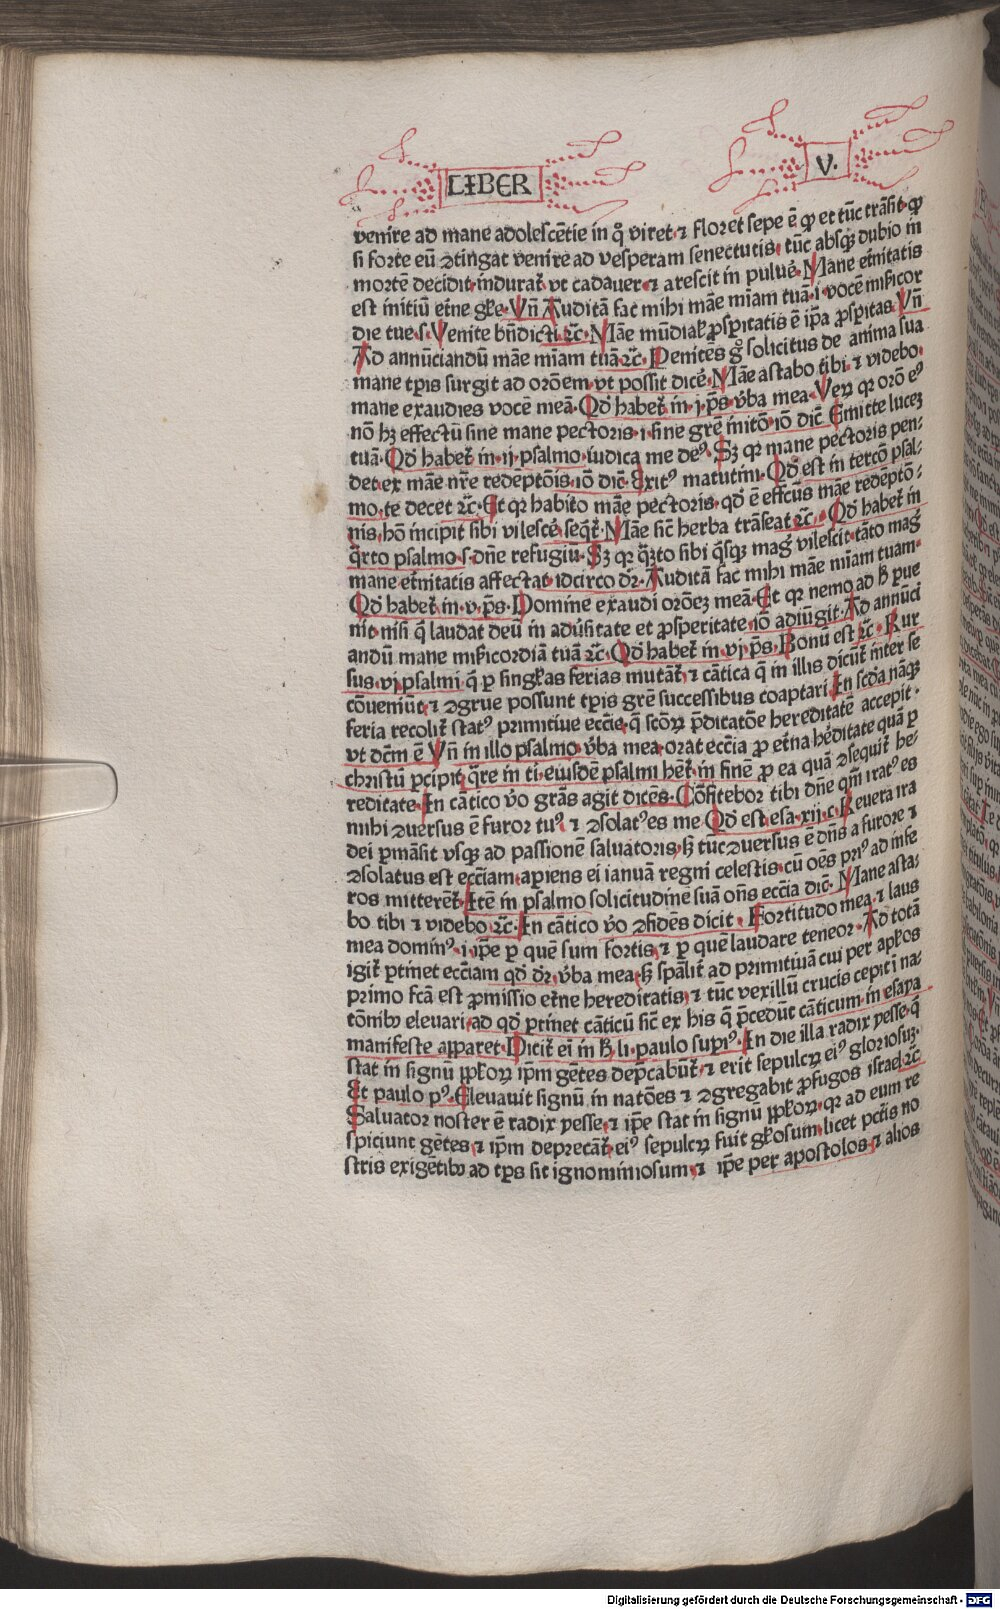 LIBER V.
venire ad mane adolescētie in q̄ viret· ⁊ floret sepe ē ꝙ et tūc trāsit· ꝙ
si forte eū ꝯtingat venire ad vesperam senectutis· tūc absqꝫ dubio in
mortē decidit· indurat᷑ vt cadauer· ⁊ arescit in puluē· Mane et̄nitatis
est initiū et̄ne gl̄ie· Vn̄ Auditā fac mihi māe mīam tuā· i· vocē misicor
die tue· s· Venite bn̄dicti ⁊c̄· Māe mūdial᷑ ꝓspitatis ē ip̄a ꝓspitas· Vn̄
Ad annūciandū māe mīam tuā ⁊c̄· Penitēs gͦ solicitus de anima sua
mane tp̄is surgit ad orōem· vt possit dicē· Māe astabo tibi· ⁊ videbo·
mane exaudies vocē meā· Qd̄ habet᷑ in· j· p̄s· v̄ba mea· Veꝝ qꝛ orō eꝰ
nō hꝫ effectū sine mane pectoris· i· sine grē initō· iō dic̄ Emitte luceꝫ
tuā· Qd̄ habet᷑ in· ij· psalmo· iudica me deꝰ· Sꝫ qꝛ mane pectoris pen⸗
det ex māe nr̄e redēptōis· iō dic̄· Exitꝰ matutini· Qd̄ est in tercō psal⸗
mo· te decet ⁊c̄· Et qꝛ habito māe pectoris· qd̄ ē effcūs māe redēptō⸗
nis· hō incipit sibi vilescē· seqt᷑· Māe sic̄ herba trāseat ⁊c̄· Qd̄ habet᷑ in
q̄rto psalmo· s· dn̄e refugiu· Sꝫ qꝛ q̄ꝫto sibi q̄sqꝫ mag̉ vilescit· tāto mag̉
mane et̄nitatis affectat· idcirco dꝛ̄· Auditā fac mihi māe mīam tuam·
Qd̄ habet᷑ in· v· p̄s· Domine exaudi orōeꝫ meā· Et qꝛ nemo ad h̄ pue
nit· nisi q̄ laudat deū in adūsitate et ꝓsperitate· iō adiūgit· Ad annūci
andū mane misicordiā tuā ⁊c̄· Qd̄ habet᷑ in vj p̄s· Bonū est ⁊c̄· Rur
sus· vj psalmi q̄ ꝑ singl̄as ferias mutāt᷑· ⁊ cātica q̄ in illis dicūt᷑ inter se
cōueniūt· ⁊ ꝯgrue possunt tp̄is grē successibus coaptari In scd̄a nāqꝫ
feria recolit᷑ statꝰ primitiue eccīe· q̄ scōꝝ p̄dicatōe hereditatē accepit·
vt dc̄m ē Vn̄ in illo psalmo· v̄ba mea· orat eccīa ꝓ et̄na hēditate quā ꝑ
christū ꝑcipit q̄re in ti· eiusdē psalmi hēt᷑· in finē ꝓ ea quā ꝯsequit᷑ he⸗
reditate· In cātico v̄o grās agit dicēs· Cōfitebor tibi dn̄e qm̄ iratꝰ es
mihi ꝯuersus ē furor tuꝰ· ⁊ ꝯsolatꝰ es me· Qd̄ est esa· xij· c· Reuera ira
dei ꝑmāsit vsqꝫ ad passionē saluatoris· sꝫ tūc ꝯuersus ē dn̄s a furore ⁊
ꝯsolatus est eccīam· apiens ei ianuā regni celestis· cū oēs priꝰ ad infe
ros mitterēt᷑· Itē in psalmo solicitudinē suā on̄s eccīa dic̄· Mane asta⸗
bo tibi ⁊ videbo ⁊c̄· In cātico v̄o ꝯfidēs dicit· Fortitudo mea· ⁊ laus
mea dominꝰ· i· ip̄e ꝑ quē sum fortis· ⁊ ꝑ quē laudare teneor· Ad totā
igit᷑ ꝑtinet eccīam qd̄ dꝛ̄· v̄ba mea· sꝫ spāl̄it᷑ ad primitiuā cui per apl̄os
primo fcā est ꝓmissio et̄ne hereditatis· ⁊ tūc vexillū crucis cepit i na⸗
tōnibꝫ eleuari· ad qd̄ ꝑtinet cāticū sic̄ ex his q̄ p̄cedūt cāticum· in esaya
manifeste apparet· Dicit᷑ eī in h̄ li· paulo supiꝰ· In die illa radix yesse· q̄
stat in signū ppl̄oꝝ ip̄m gētes dep̄cabūt᷑· ⁊ erit sepulcꝝ eiꝰ gloriosuꝫ·
Et paulo pꝰ· Eleuauit signū in natōes ⁊ ꝯgregabit ꝓfugos israel ⁊c̄
Saluator noster ē radix yesse· ⁊ ip̄e stat in signū ppl̄oꝝ· qꝛ ad eum re
spiciunt gētes· ⁊ ip̄m deprecāt᷑· eiꝰ sepulcꝝ fuit gl̄osum· licet pctīs no
stris exigētibꝫ ad tp̄s sit ignominiosum· ⁊ ip̄e per apostolos· ⁊ alios
Digitalisierung gefördert durch die Deutsche Forschungsgemeinschaft - DFG